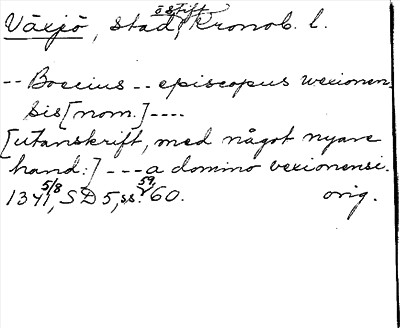 Växjö, stad o. stift, Kronob. l.
-- Boecius -- episcopus wexionen-
sis [nom.] ----
[utanskrift, med något nyare
hand:] --- a domino vexionensi.
1341 5/8, SD 5, ss. 59, 60. orig.